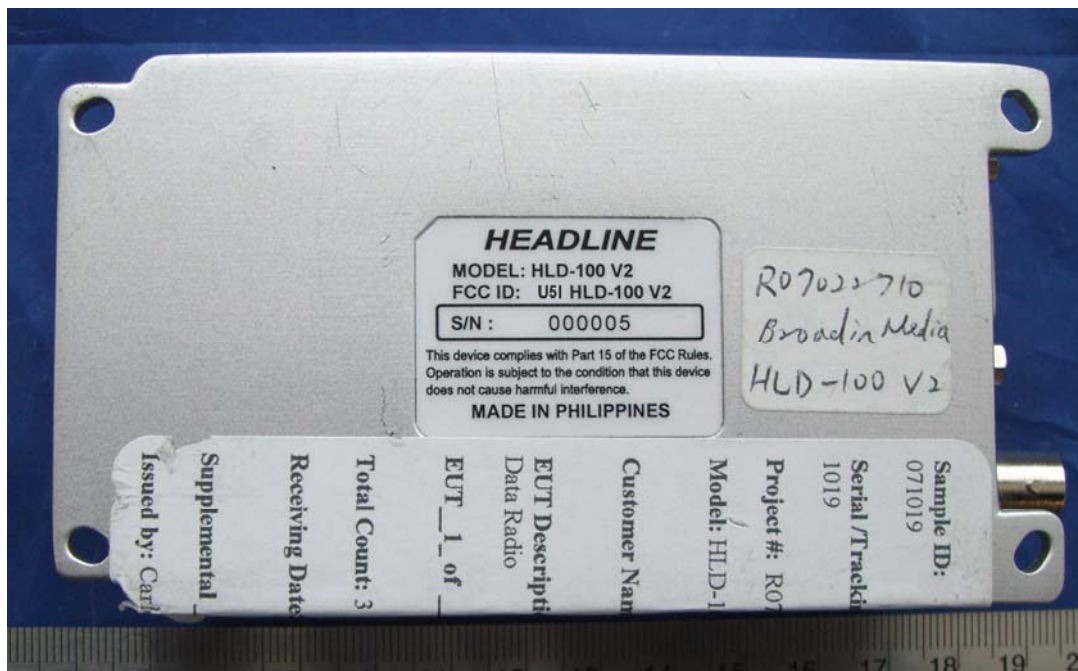 HEADLINE
MODEL: HLD-100 V2
FCC ID: U5I HLD-100 V2
S/N : 000005
This device complies with Part 15 of the FCC Rules.
Operation is subject to the condition that this device
does not cause harmful interference.
MADE IN PHILIPPINES
R07022710
Broadin Media
HLD-100 V2
Sample ID:
071019
Serial /Tracki
1019
Project #: R07
Model: HLD-1
Customer Nam
EUT Descripti
Data Radio
EUT_1_of _
Total Count: 3
Receiving Date
Supplemental _
Issued by: Carl
12 13 14 15 16 17 18 19 2